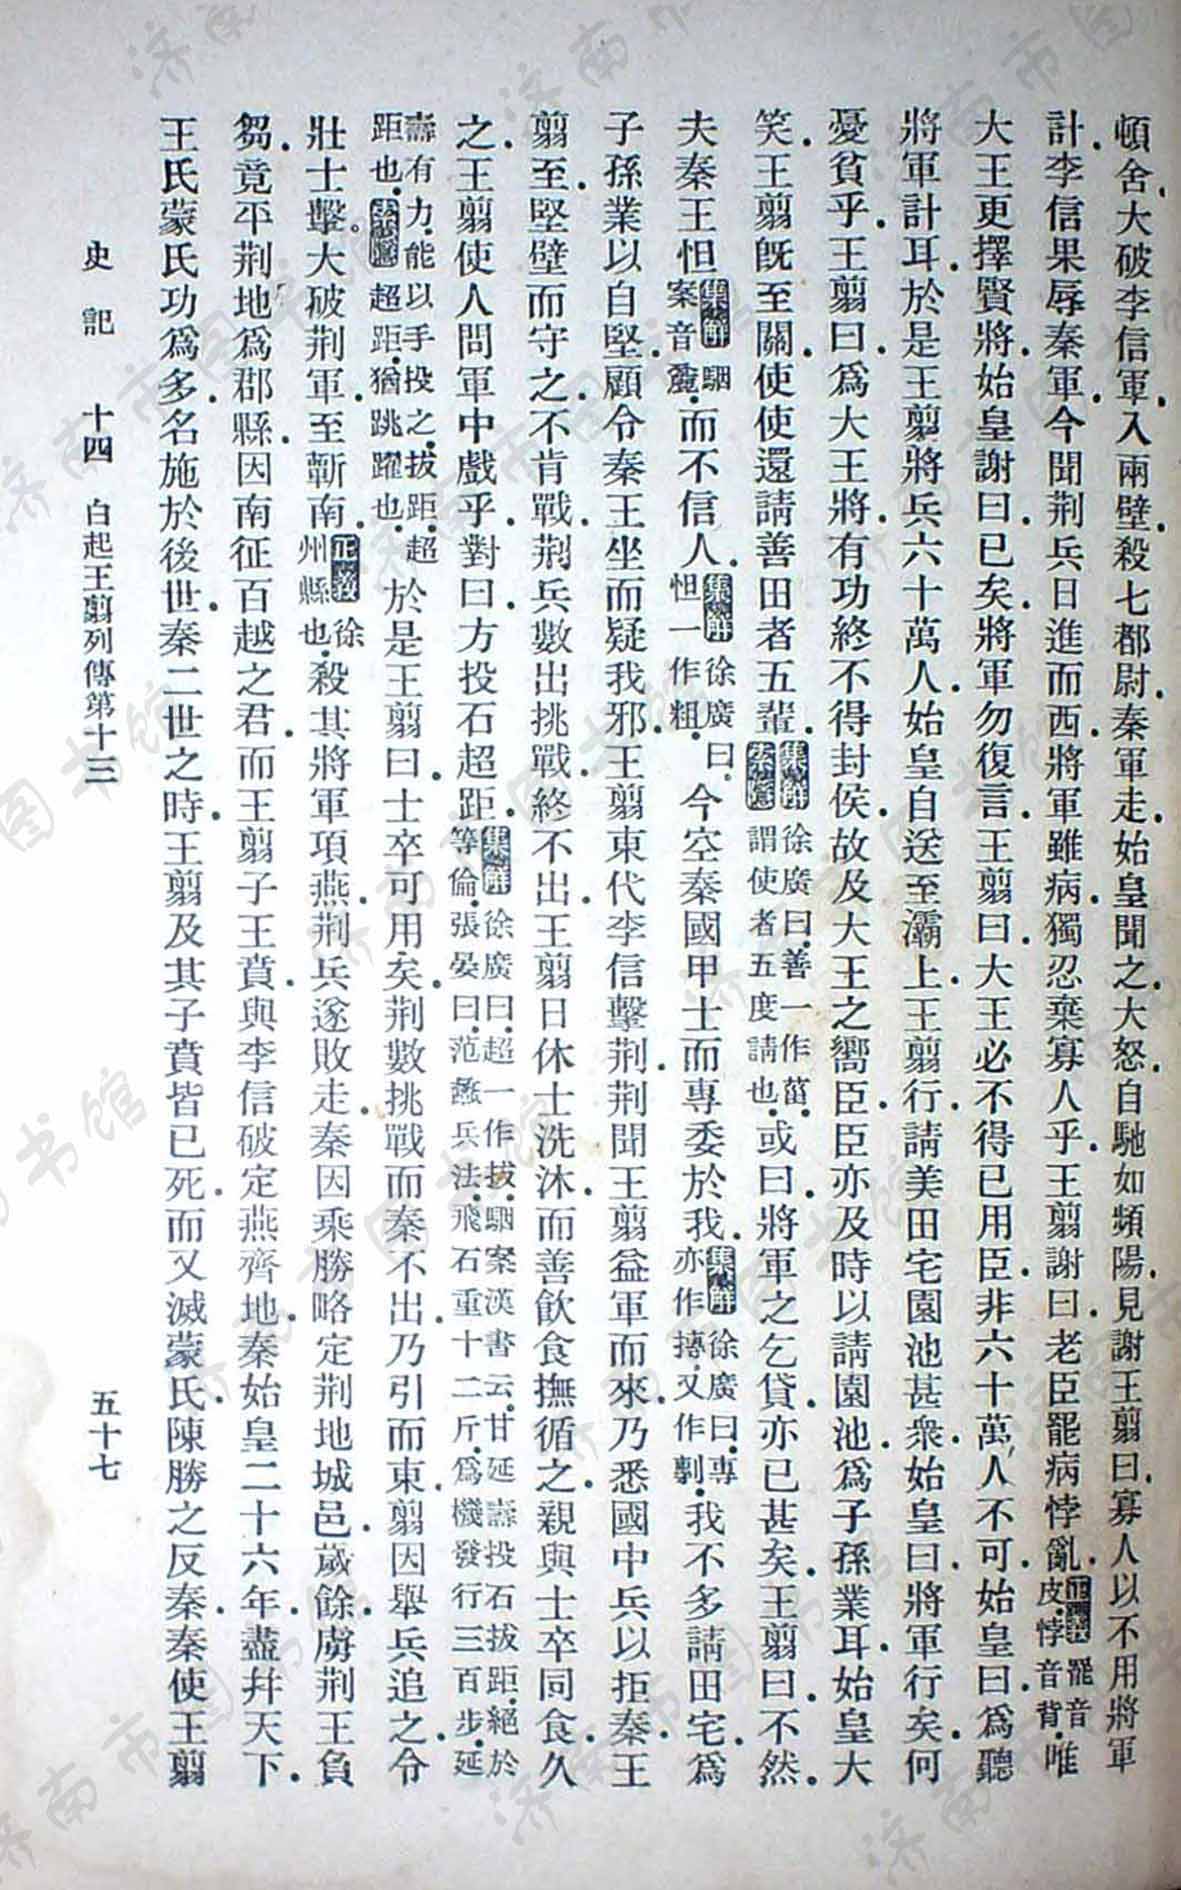 頓舍.大破李信軍.入兩壁.殺七都尉.秦軍走.始皇聞之.大怒.自馳如頻陽.見謝王翦曰.寡人以不用將軍
計.李信果辱秦軍.今聞荆兵日進而西.將軍雖病.獨忍棄寡人乎.王翦謝曰.老臣罷病悖亂.正義罷音皮.悖音背.唯
大王更擇賢將.始皇謝曰.已矣.將軍勿復言.王翦曰.大王必不得已用臣.非六十萬人不可.始皇曰.爲聽
將軍計耳.於是王翦將兵六十萬人.始皇自送至灞上.王翦行.請美田宅園池甚衆.始皇曰.將軍行矣.何
憂貧乎.王翦曰.爲大王將.有功終不得封侯.故及大王之嚮臣.臣亦及時以請園池.爲子孫業耳.始皇大
笑.王翦旣至關.使使還請善田者五輩.集解徐廣曰.善一作菑.索隱謂使者五度請也.或曰.將軍之乞貸.亦已甚矣.王翦曰.不然.
夫秦王怚集解駰案音麤.而不信人.集解徐廣曰.怚一作粗.今空秦國甲士而專委於我.集解徐廣曰.專亦作摶.又作剸.我不多請田宅.爲
子孫業以自堅.顧令秦王坐而疑我邪.王翦東代李信擊荆.荆聞王翦益軍而來.乃悉國中兵以拒秦.王
翦至.堅壁而守之.不肯戰.荆兵數出挑戰.終不出.王翦日休士洗沐.而善飲食撫循之.親與士卒同食.久
之.王翦使人問軍中戲乎.對曰.方投石超距.集解徐廣曰.超一作拔.駰案漢書云.甘延壽投石拔距.絕於等倫.張晏曰.范蠡兵法.飛石重十二斤.爲機發行三百步.延
壽有力.能以手投之.拔距.超距也.索隱超距.猶跳躍也.於是王翦曰.士卒可用矣.荆數挑戰而秦不出.乃引而東.翦因舉兵追之.令
壯士擊.大破荆軍.至蘄南.正義徐州縣也.殺其將軍項燕.荆兵遂敗走.秦因乘勝略定荆地城邑.歲餘.虜荆王負
芻.竟平荆地爲郡縣.因南征百越之君.而王翦子王賁.與李信破定燕齊地.秦始皇二十六年.盡幷天下.
王氏蒙氏功爲多.名施於後世.秦二世之時.王翦及其子賁皆已死.而又滅蒙氏.陳勝之反秦.秦使王翦
史記 十四 白起王翦列傳第十三 五十七
濟南市图书馆